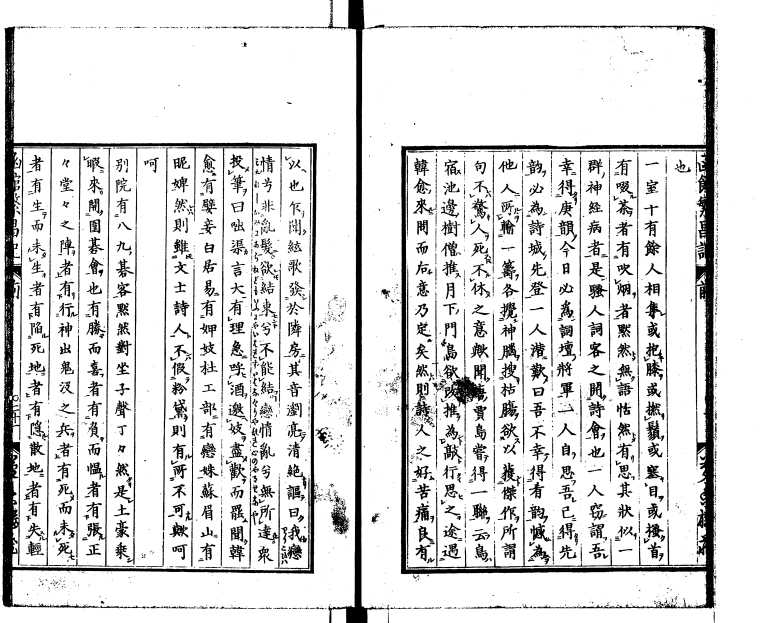 也
一室十有餘人相集或抱膝或撚鬚或塞目或掻首
有啜茶者有吹烟者黙然無語怙然有思其狀似一
群神経病者是騷人詞客之開詩會也一人窃謂吾
幸得庚韻今日必為詞壇將軍一人自思吾已得先
韵必為詩城先登一人潜歎曰吾不幸得肴韵憾為
他人所輸一籌各攪神腦搜枯腸欲以獲傑作所謂
句不驚人死不休之意歟聞唐賈島甞得一聯云鳥
宿池邊樹僧推月下門島欲改推為敲行思之途遇
韓愈來問而后意乃定矣然則詩人之好苦痛良有
以也乍聞絃歌發於隣房其音瀏亮清絶謳曰我戀
情兮非亂髪欲結束兮不能結戀情亂兮無所達衆
投筆曰咄渠言大有理急呼酒邀妓盡歡而罷聞韓
愈有嬖妾白居易有妬妓杜工部有戀妹蘇眉山有
昵婢然則雖文士詩人不假粉黛則有所不可歟呵
呵
別院有八九碁客黙然對坐子聲丁々然是土豪乗
暇來開圍碁會也有勝而喜者有負而愠者有張正
々堂々之陣者有行神出鬼没之兵者有死而未死
者有生而未生者有陷死地者有隱散地者有失輕